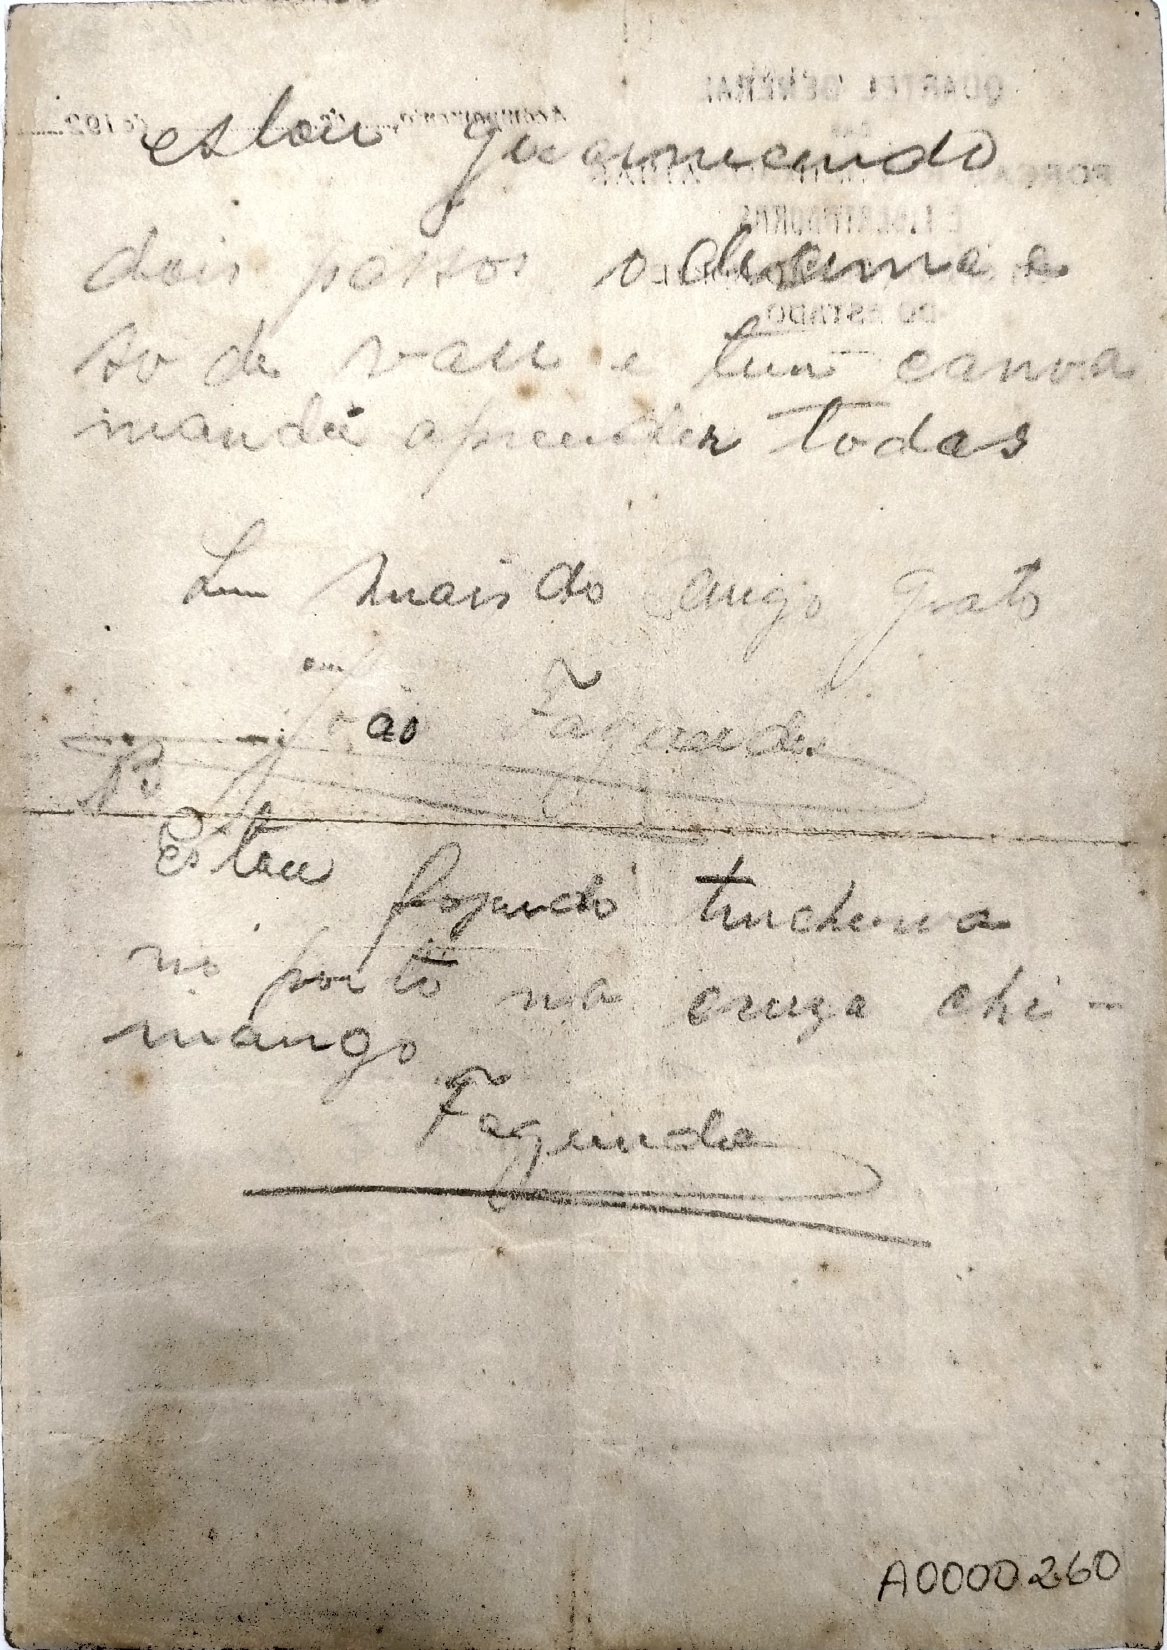 estou guarnecendo
dois passos o de cima e
so de vau e tem canoa
mandei apreender todas
Sem mais do amigo grato
João Fagundes
NB
Estou fazendo trincheira
no porto na cruza chi-
mango
Fagundes
A0000260